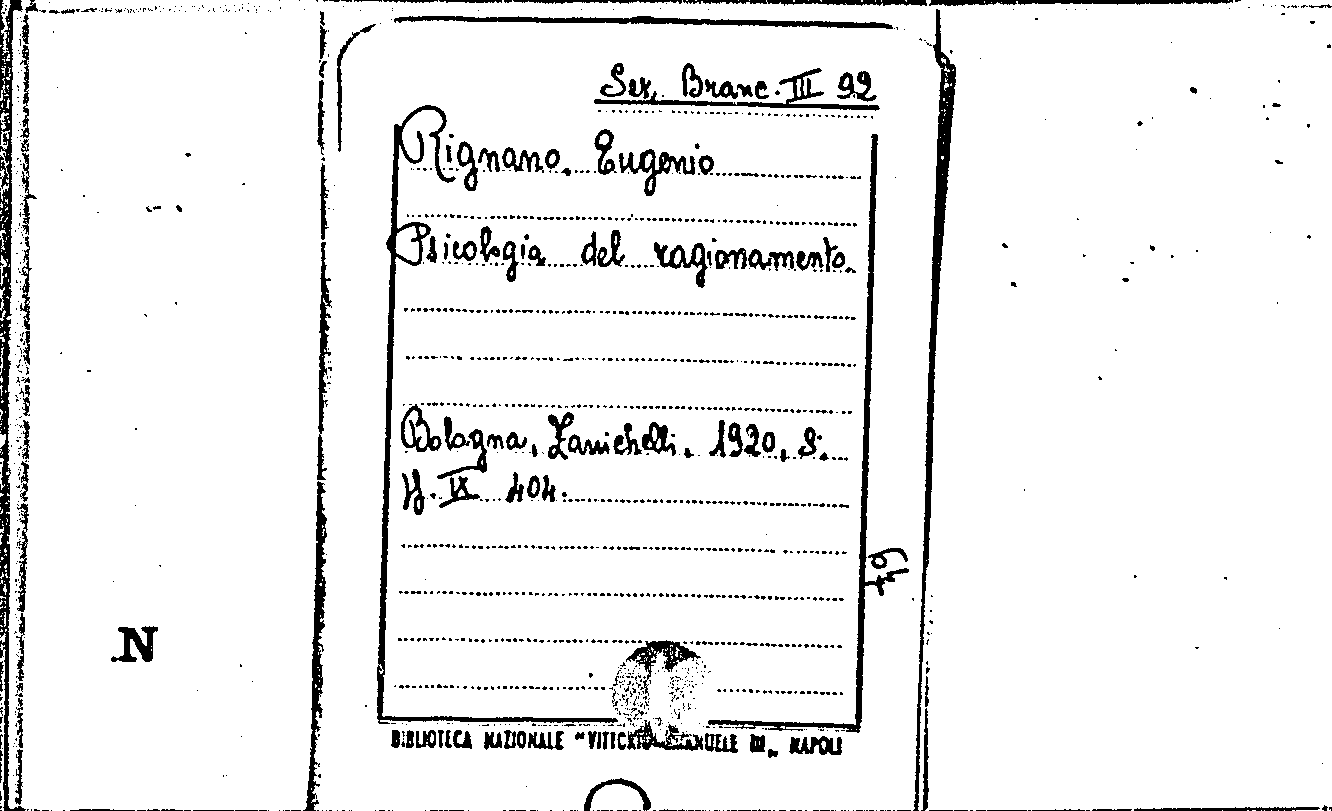 Sez. Branc. III 92
Rignano. Eugenio
Psicologia del ragionamento.
Bologna, Zanichelli. 1920, 8.
IX 404.
N
BIBLIOTECA NAZIONALE "VITTORIO EMANUELE III" NAPOLI